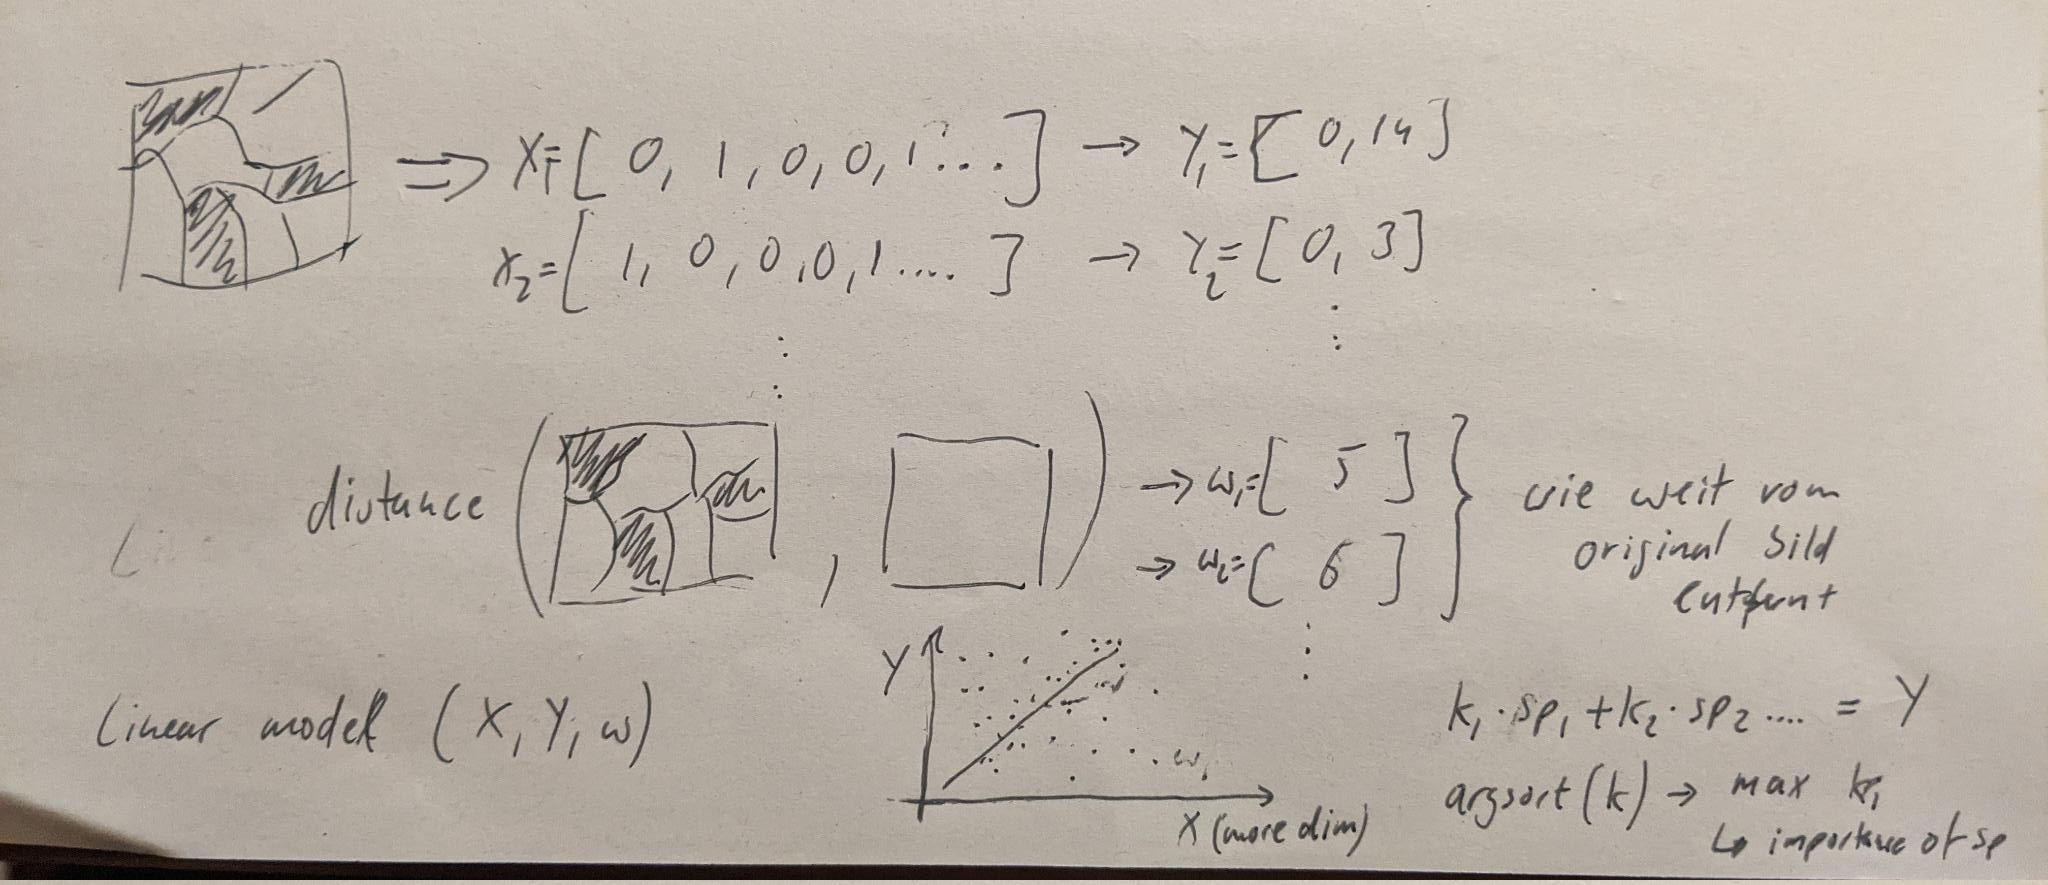 ⇒ X₁=[ 0, 1, 0, 0, 1 ... ] → Y₁=[ 0, 14 ]
x₂=[ 1, 0, 0, 0, 1 .... ] → Y₂=[ 0, 3 ]
distance ( , ) → w₁=[ 5 ] } wie weit vom
→ w₂=[ 6 ] original bild
entfernt
Linear model (X, Y, w)
Y
w₁
X (more dim)
k₁ · sp₁ + k₂ · sp₂ .... = Y
argsort (k) → max k₁
↳ importance of sp